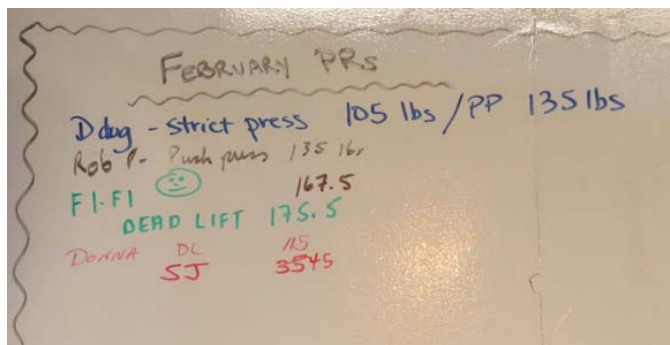 FEBRUARY PRs
Doug - strict press 105 lbs / PP 135 lbs
Rob P. - Push press 135 lbs
FI-FI 167.5
DEAD LIFT 175.5
DONNA DL 115
SJ 3545